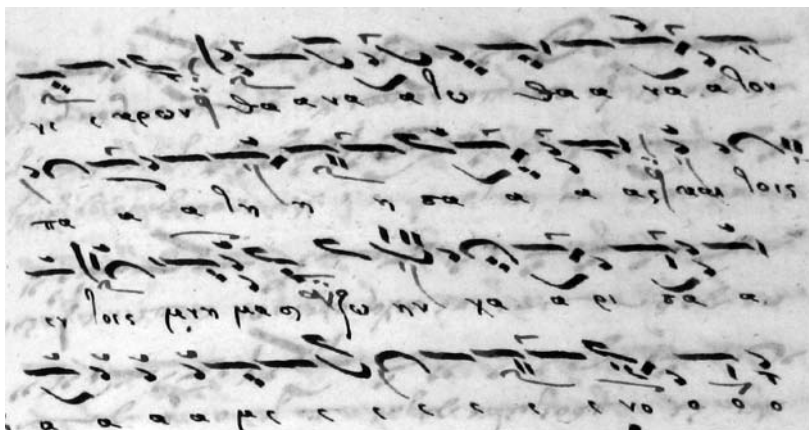 νε ε κρων θα α να α τω θα α να α τον
πα α α τη η η σα α α ας και τοις
εν τοις μνη μα σι ζω ην χα α ρι σα α
α α α α με ε ε ε ε ε ε νο ο ο ο